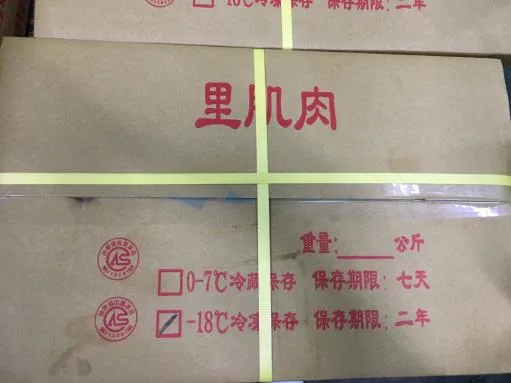 -18℃冷凍保存 保存期限：二年
里肌肉
重量:______公斤
0-7℃冷藏保存 保存期限：七天
-18℃冷凍保存 保存期限：二年